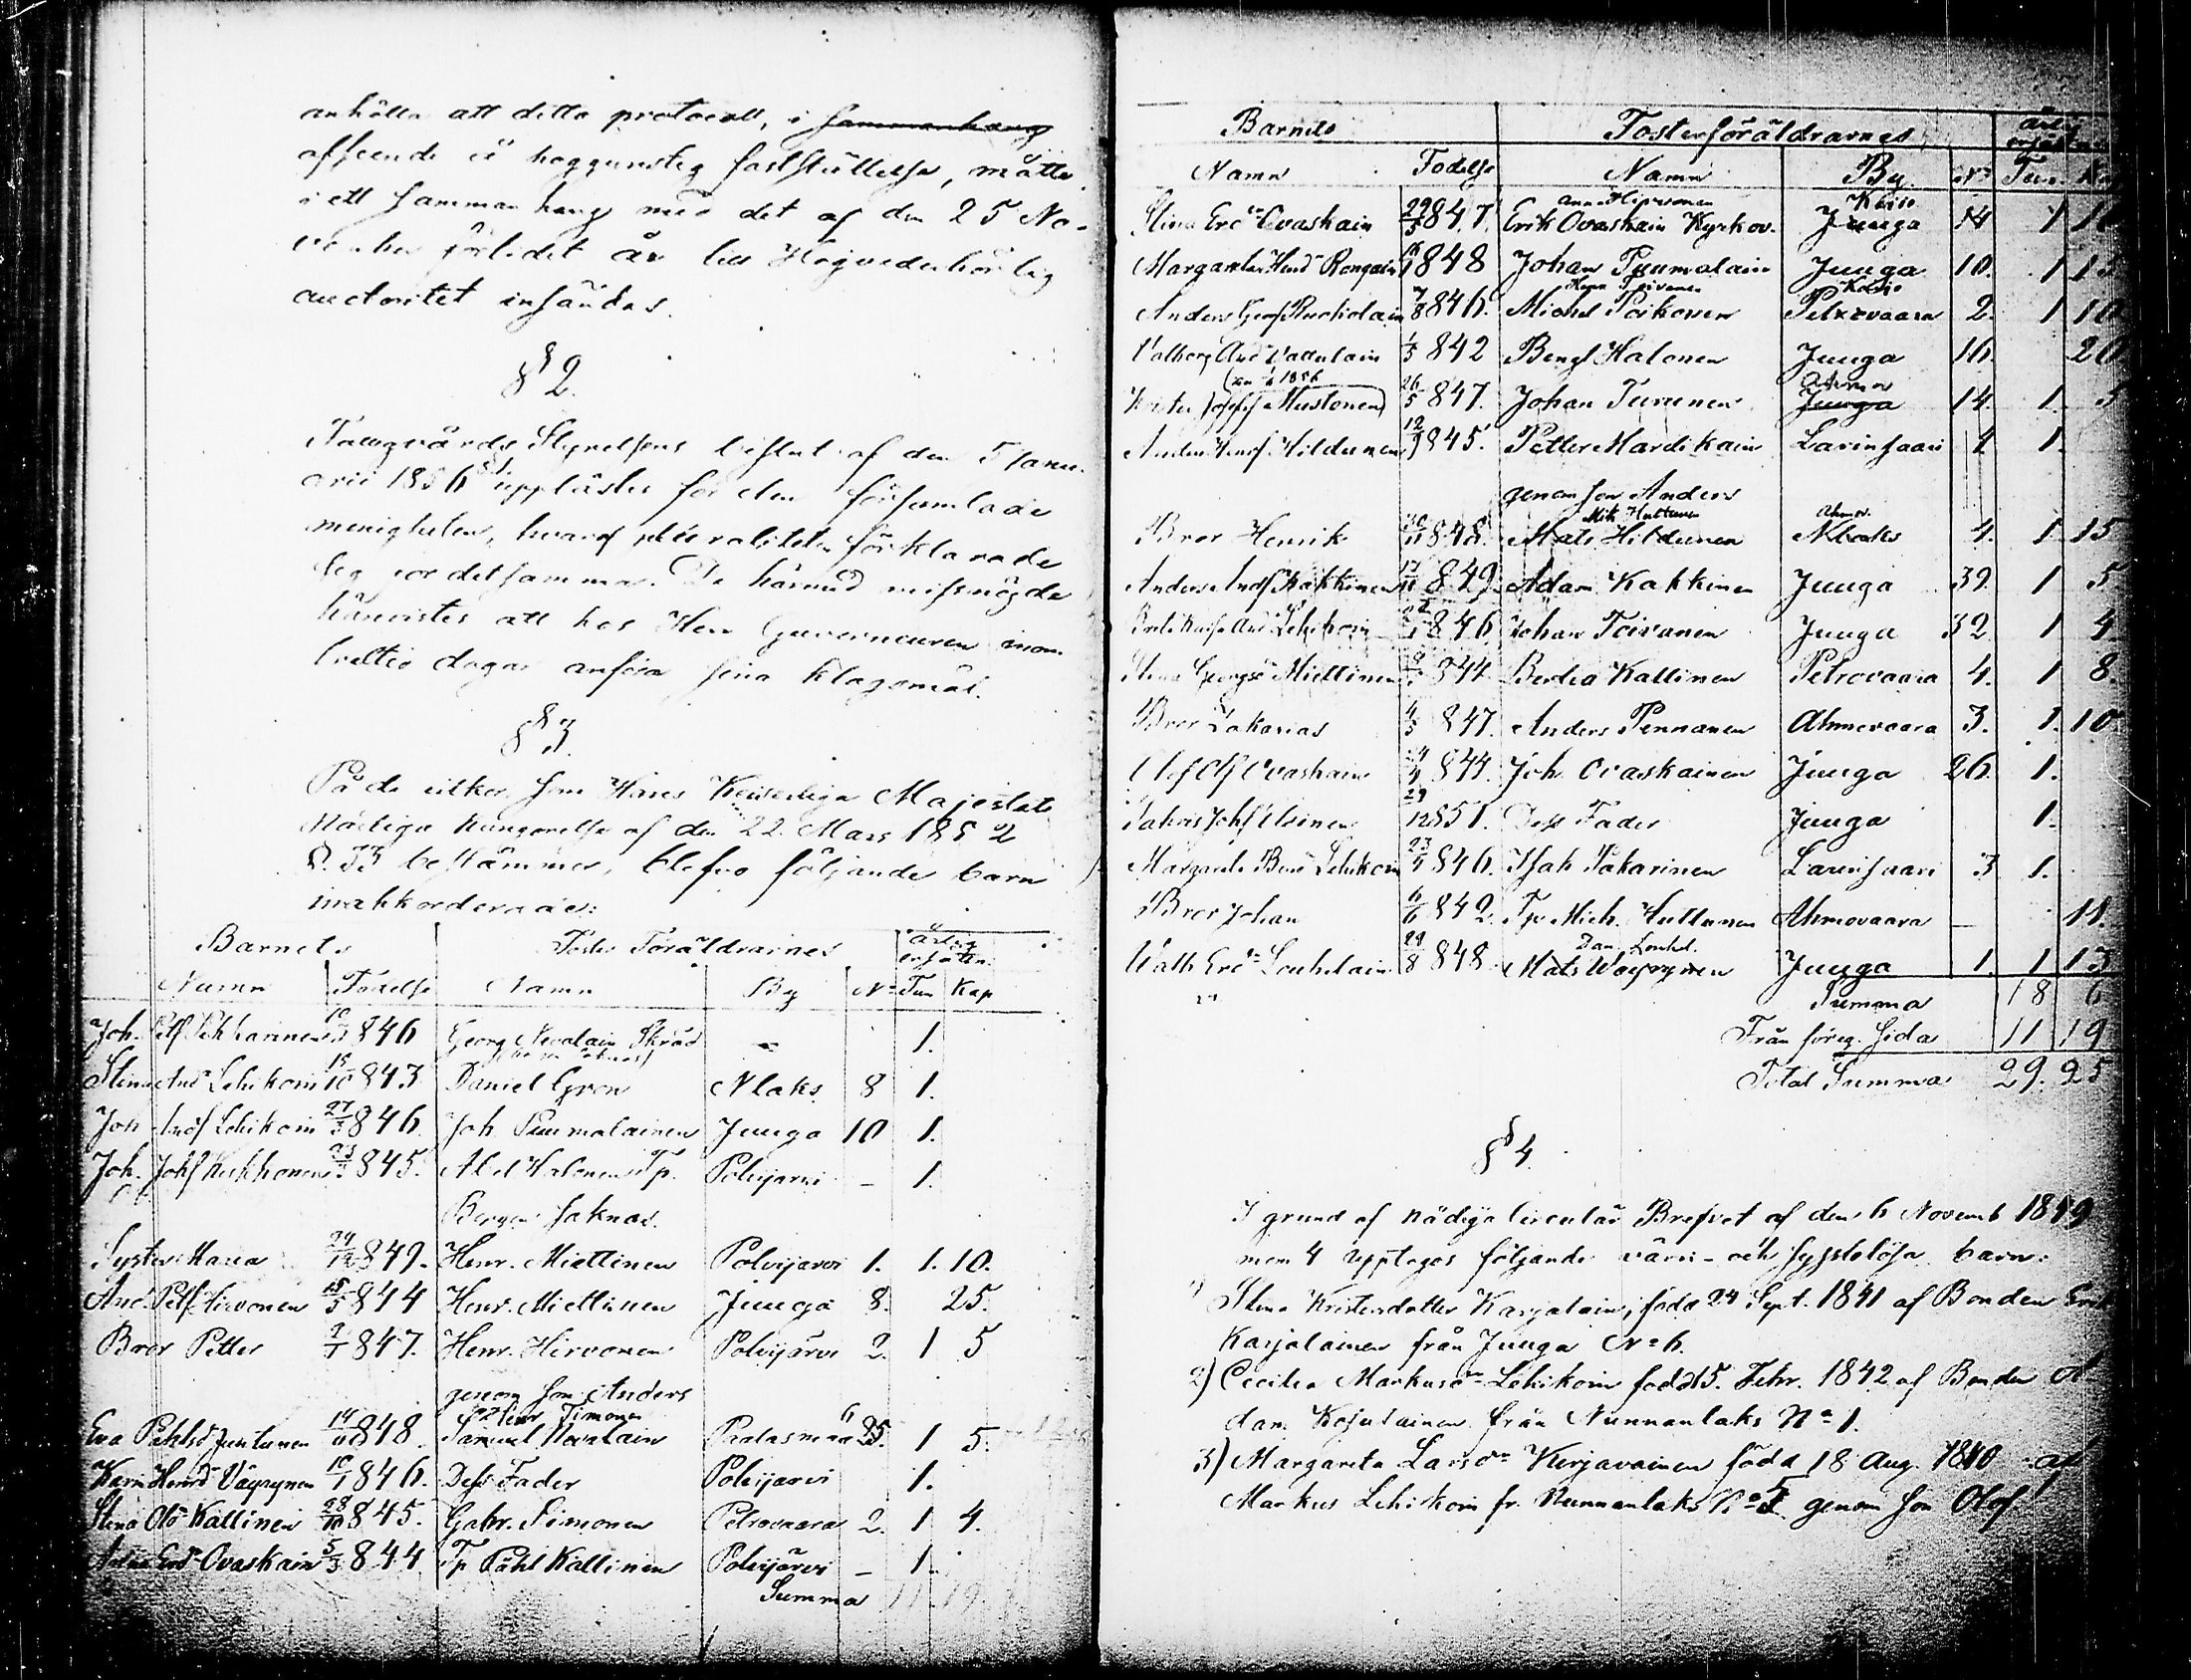 anhålla att detta protocoll, i sammanhang
afseende å höggunstig fastställelse, måtte
i ett sammanhang med det af den 25 No-
vember förlidet år till Högvederbörlig
auctoritet insändas.
§ 2.
Fattigvårds Styrelsens beslut af den 5 Janu-
arii 1856 upplästes för den församlade
menigheten, hvaraf pluraliteten förklarade
sig för detsamma. De härmed missnöjde
hänvistes att hos Herr Guverneuren inom
trettio dagar anföra sina klagomål.
§ 3.
På de vilkor som Hans Keiserliga Majestäts
Nådiga Kungörelse af den 22 Mars 1852
§. 33 bestämmer, blefvo följande barn
inackorderade:
Barnets Foster Föräldrarnes årlig ersättn.
Namn Födelse Namn By No Tun Kap
Joh. Petf Pekkarinen 10 846 Georg Nevalain Skräd – 1.
Stina And. Lehikoin 15/10 843 Daniel Gron Nlaks 8 1.
Joh Andf Lehikoin 27/3 846. Joh. Puumalainen Juuga 10 1.
Joh. Johf Kukkonen 23 845. Abel Halonen Tp. Polvijärvi – 1.
Bergen saknas.
Syster Maria 24/12 849. Henr. Miettinen Polvijärvi 1. 1. 10.
And. Petf Hirvonen 15/5 844 Henr. Miettinen Juuga 8. 25.
Bror Petter 2/7 847. Henr. Hirvonen Polvijärvi 2. 1 5
genom son Anders
Henr Timonen
Eva Påhlsd Juntunen 14/11 848. Samuel Nevalain Paalasmaa 25. 6 1 5.
Karin Henrd Väyrynen 10/1 846. Dess Fader Polvijärvi 1.
Stina Olsd Kallinen 28/10 845. Gabr. Simonen Petrovaara 2. 1 4.
Erd. Ovaskain 5/3 844 Tp Påhl Kallinen Polvijärvi – 1.
Summa 11. 19.
Barnets Fosterföräldrarnes årl. ersättn.
Namn Födelse Namn By No Tun. Kap
Anna Hipponen Kaiso
Stina Erd. Ovaskain 29/5 847. Erik Ovaskain Kyrkov. Juuga 14 1 10
Margareta Henrd Rongain 16/1 848 Johan Puumalain Juuga 10. 1 15
Henr Toivanen
Anders Georf Ruokolain 7/8 846. Michel Poikonen Petrovaara 2. 1 10
Valborg And. Vattulain 1/5 842 Bengt Halonen Juuga 16. 20
1856
Josefsf Mustonen 26/5 847. Johan Turunen Juuga 14. 1. 5
Anders Henrf Hildunen 12/9 845. Petter Mardikain Larinsaari 4 1.
genom son Anders
Mik Huttunen Ahmov.
Bror Henrik 30/11 848. Mats Hildunen Nlaks 4. 1 15
Anders Andf Kakkinen 17/11 849. Adam Kakkinen Juuga 39. 1 5
And. Lehikoin 846 Johan Toivanen Juuga 32 1 4
Stina Georgsd Miettinen 844. Bertha Kallinen Petrovaara 4. 1 8.
Bror Zakarias 4/5 847. Anders Pennanen Ahmovaara 3. 1. 10.
Olof Olf Ovaskain 24/4 844. Joh. Ovaskainen Juuga 26. 1.
Johf 29/12 851. Dess Fader Juuga 1.
Margareta Lehikoin 23/4 846. Isak Pakarinen Larinsaari 3 1.
Bror Johan 6/6 842. Tp Mich. Huttunen Ahmovaara – 11.
Dan Louhel.
Walb Erd. Louhelain 29/8 848 Mats Wäyrynen Juuga 1. 1 13
Summa 18 6
Från föreg. sida 11 19
Total Summa 29. 25
§ 4.
I grund af nådiga Circulär Brefvet af den 6 Novemb 1849
mom 4 upptogos följande värn- och sysslolösa barn:
1) Stina Kristersdotter Karjalain, född 24 Sept. 1841 af Bonden Erik
Karjalainen från Juuga No 6.
2) Cecilia Markusdr Lehikoin född 15. Febr. 1842 af Bonden A-
dam Kojulainen från Nunnanlaks No 1.
3) Margareta Larsdr Kurjavainen född 18 Aug. 1840 af
Markus Lehikoin fr. Nunnanlaks No 5. genom son Olof